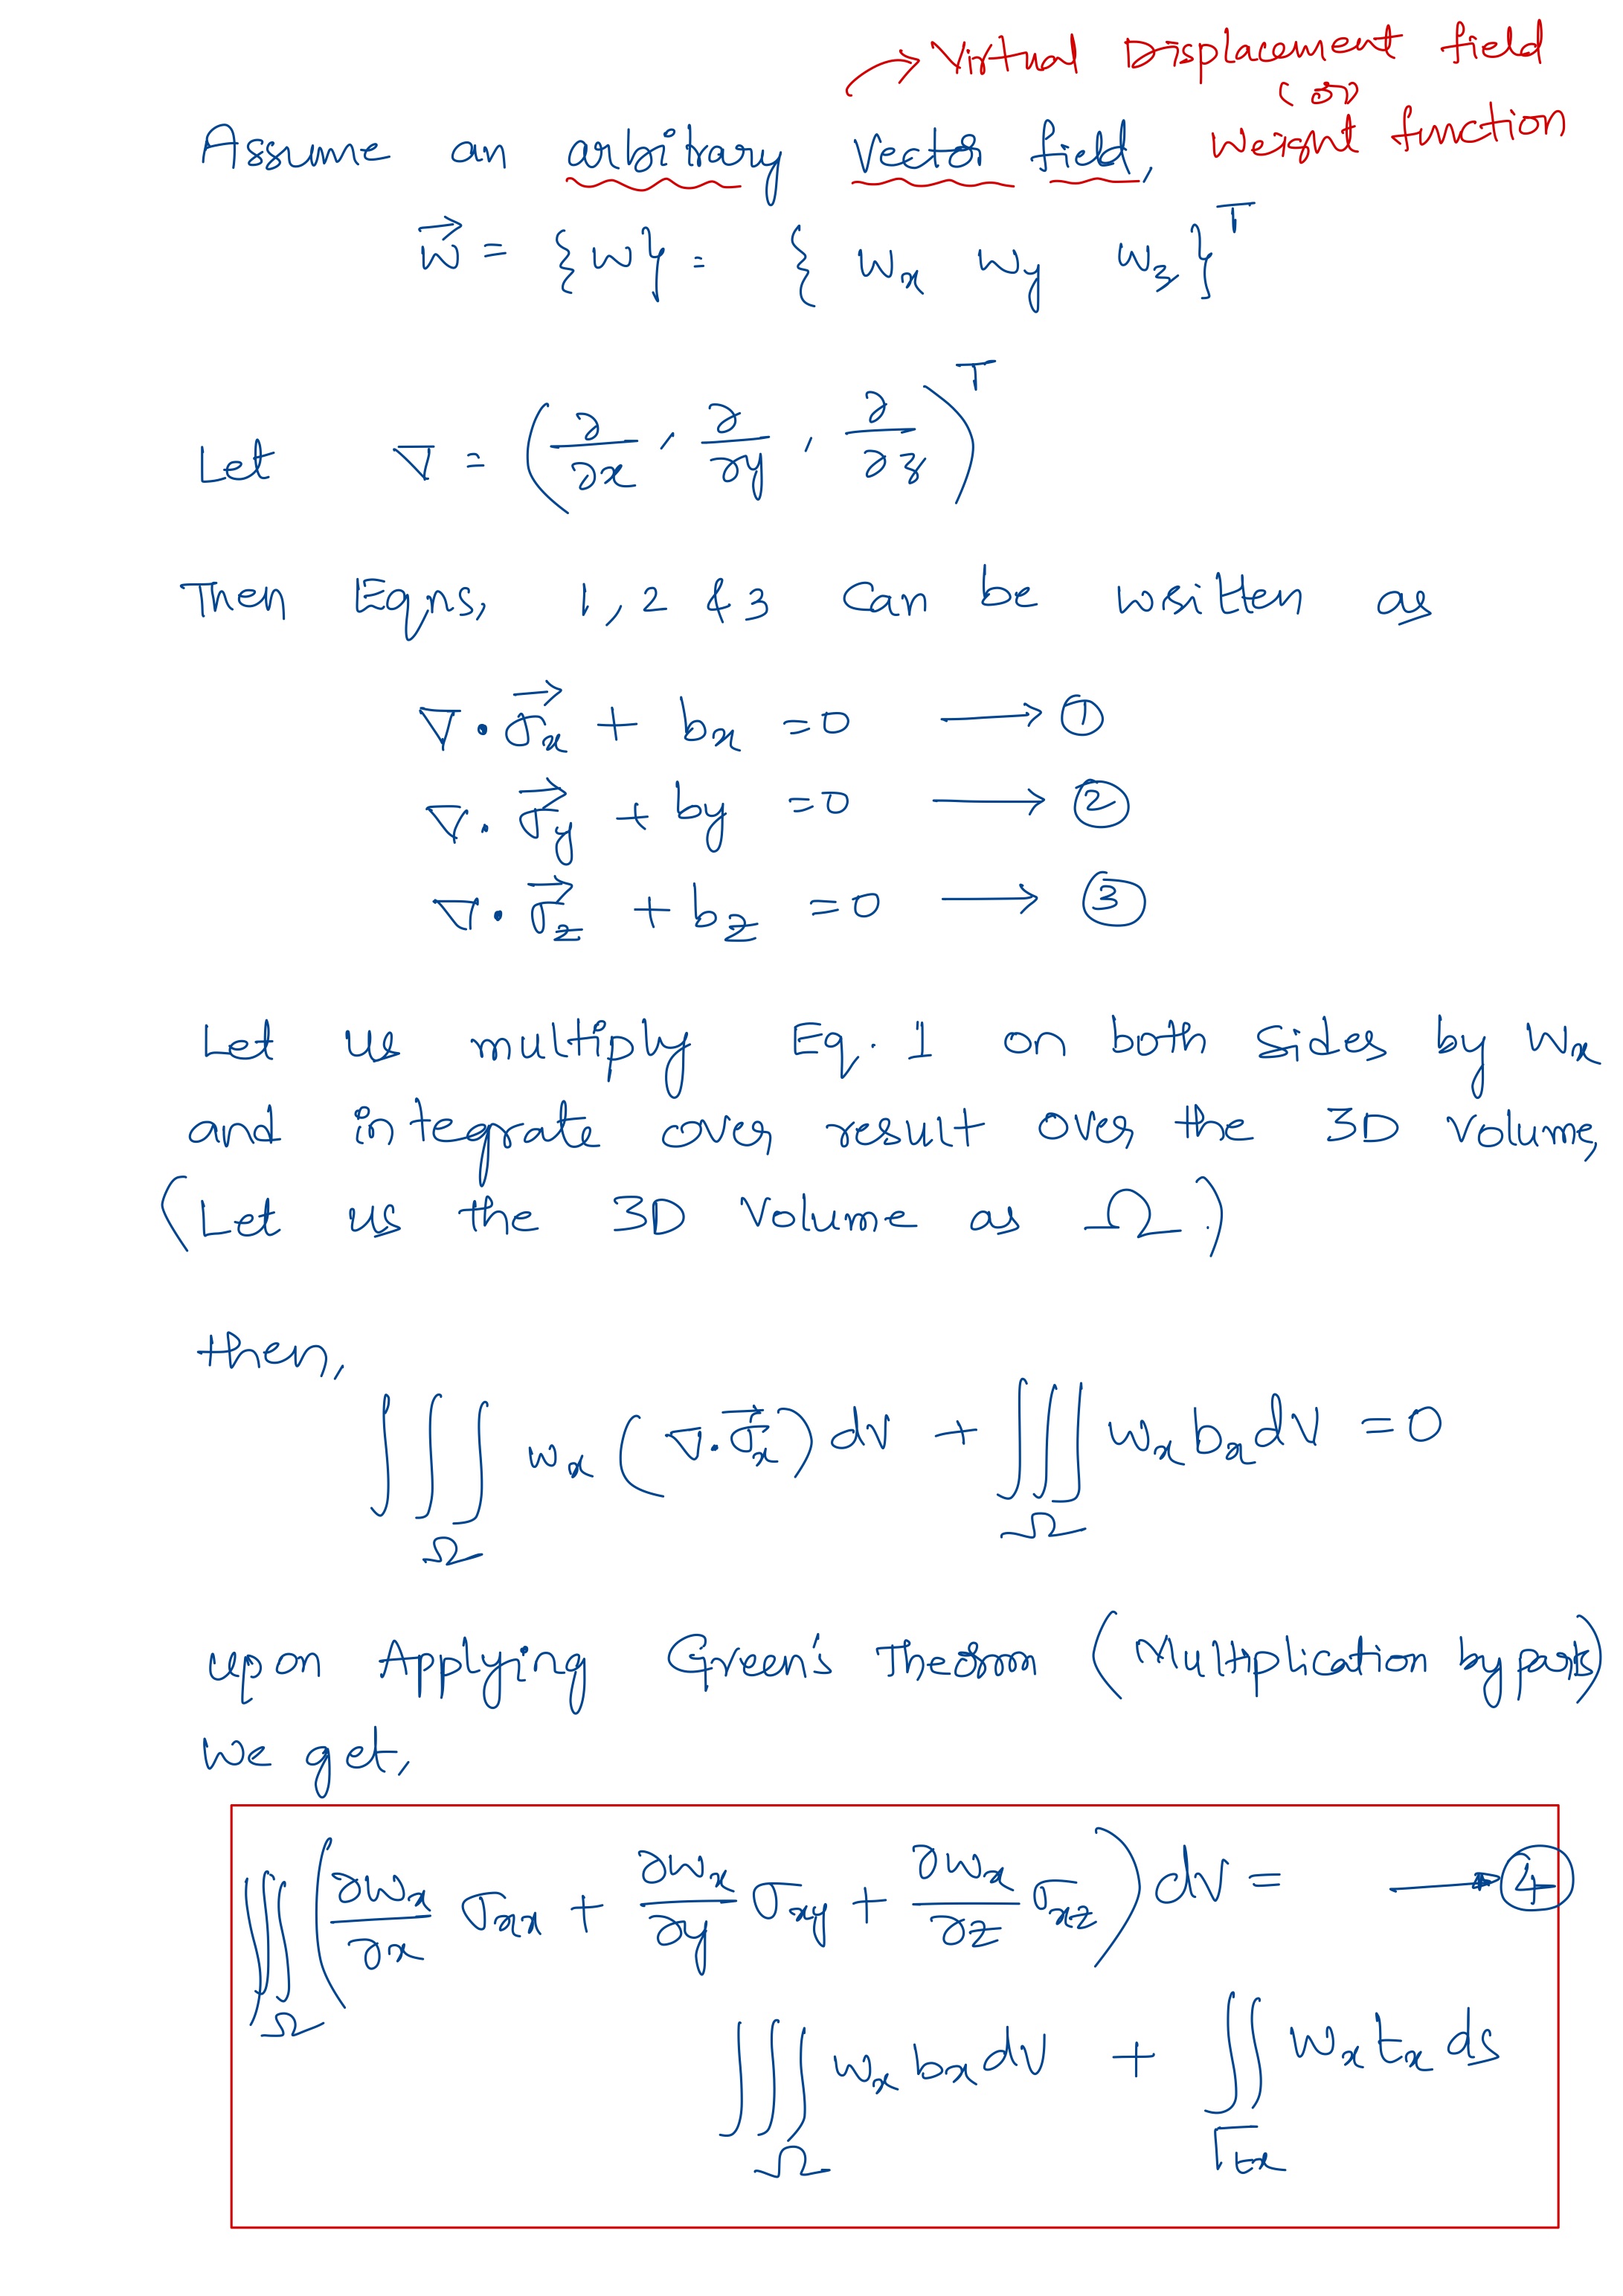 Virtual Displacement field
(or)
Weight function
Assume an arbitrary vector field,
w⃗ = {w} = { wx wy wz }ᵀ
Let ∇ = (∂/∂x , ∂/∂y , ∂/∂z)ᵀ
Then Eqns, 1, 2 & 3 can be written as
∇·σ⃗x + bx = 0 → ①
∇·σ⃗y + by = 0 → ②
∇·σ⃗z + bz = 0 → ③
Let us multiply Eq. 1 on both sides by wx
and integrate over result over the 3D volume,
(Let us the 3D volume as Ω.)
then,
∭Ω wx (∇·σ⃗x) dv + ∭Ω wx bx dv = 0
upon Applying Green's Theorm (Multiplication by parts)
we get,
∭Ω (∂wx/∂x σxx + ∂wx/∂y σxy + ∂wx/∂z σxz) dv = → ④
∭Ω wx bx dv + ∬Γtx wx tx ds